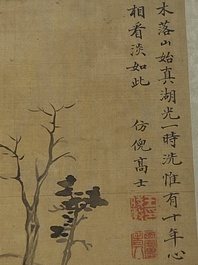 木落山始真湖光一時洗惟有十年心
相看淡如此
仿倪高士